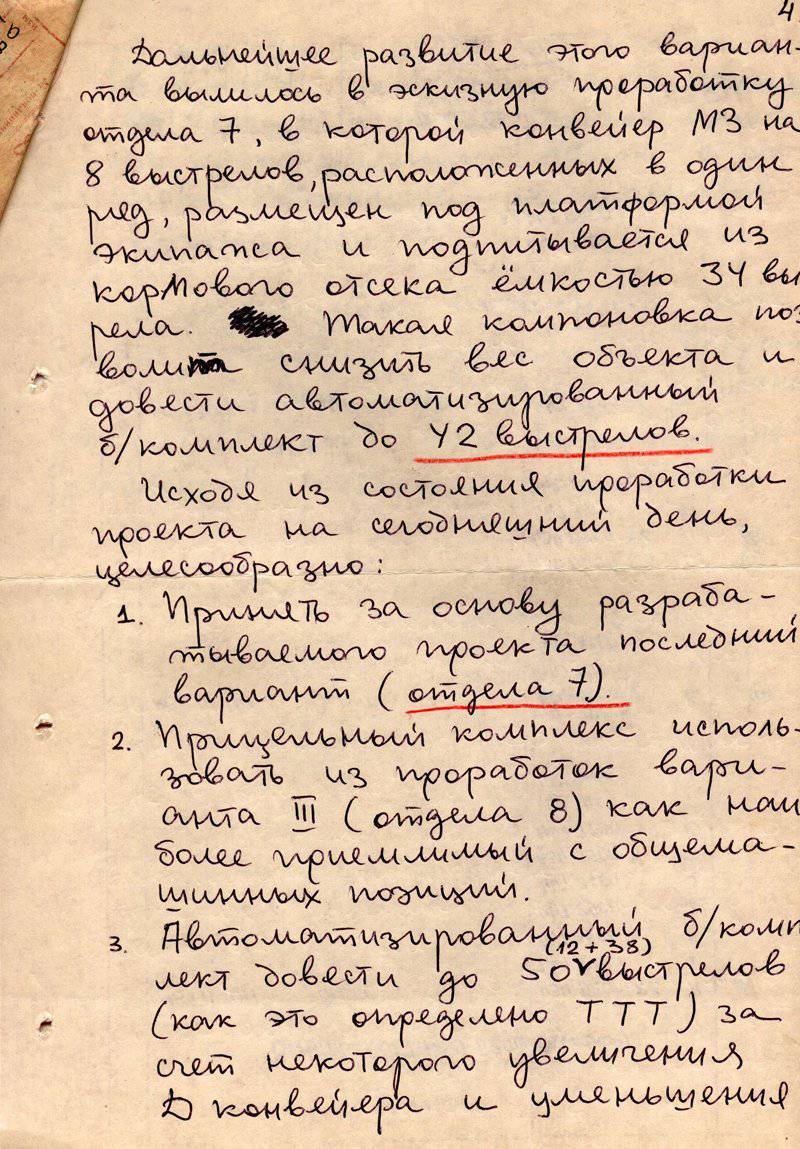 4
Дальнейшее развитие этого вариан-
та вылилось в эскизную проработку
отдела 7, в которой конвейер МЗ на
8 выстрелов, расположенных в один
ряд, размещен под платформой
экипажа и подпитывается из
кормового отсека ёмкостью 34 вы
рела. Такая компоновка поз
волит снизить вес объекта и
довести автоматизированный
б/комплект до 42 выстрелов.
Исходя из состояния проработки
проекта на сегодняшний день,
целесообразно:
1. Принять за основу разраба-
тываемого проекта последний
вариант (отдела 7).
2. Прицельный комплекс исполь-
зовать из проработок вари-
анта III (отдела 8) как наи
более приемлимый с общема-
шинных позиций.
3. Автоматизированный б/комп
(12 + 38)
лект довести до 50 выстрелов
(как это определено ТТТ) за
счет некоторого увеличения
D конвейера и уменьшения